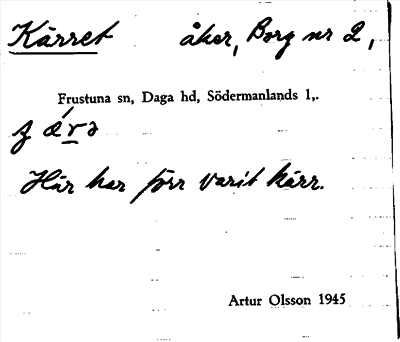 Kärret åker, Borg nr 2,
Frustuna sn, Daga hd, Södermanlands l,.
Här har förr varit kärr.
Artur Olsson 1945